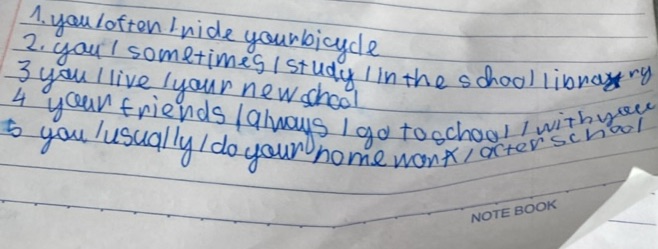 1. you/often/ride your bicycle
2. you / sometimes / study / in the school library
3 you / live / your new school
4 your friends / always / go to school / with you
5 you / usually / do your home work / after school
NOTE BOOK